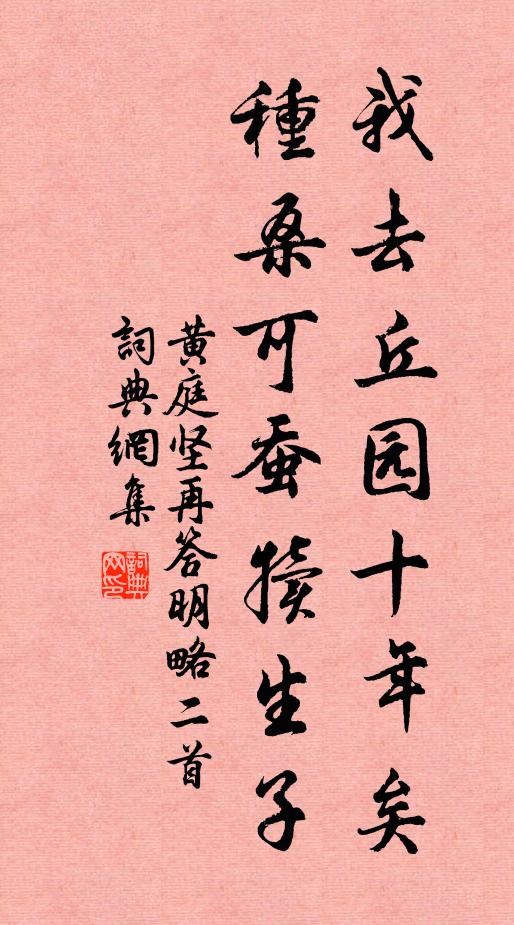 我去丘园十年矣
種桑可蚕犢生子
黄庭坚再答明略二首
詞典網集
詞典网印